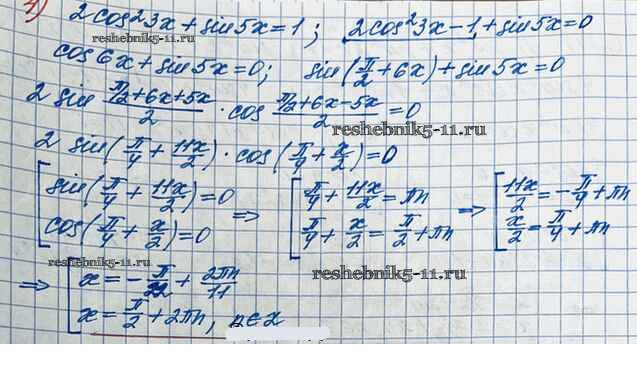 2cos²3x + sin5x = 1; 2cos²3x - 1 + sin5x = 0
reshebnik5-11.ru
cos6x + sin5x = 0; sin(π/2 + 6x) + sin5x = 0
2 sin (π/2+6x+5x)/2 · cos (π/2+6x-5x)/2 = 0
reshebnik5-11.ru
2 sin(π/4 + 11x/2) · cos(π/4 + x/2) = 0
[ sin(π/4 + 11x/2) = 0 ⇒ [ π/4 + 11x/2 = πn ⇒ [ 11x/2 = -π/4 + πn
cos(π/4 + x/2) = 0 π/4 + x/2 = π/2 + πn x/2 = π/4 + πn
reshebnik5-11.ru
reshebnik5-11.ru
⇒ [ x = -π/22 + 2πn/11
x = π/2 + 2πn, n∈z